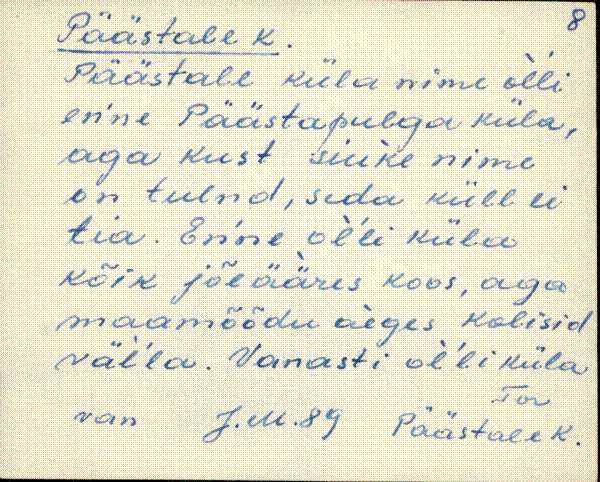 8
Päästale k.
Päästale küla nime òl'li
en'ne Päästapulga küla,
aga kust siuke nime
on tulnd, seda küll ei
tia. En'ne òl'li küla
kõik jõeääres koos, aga
maamõõdu aeges kolisid
väl'la. Vanasti ol'li küla
Tor
van J.M.89 Päästale k.